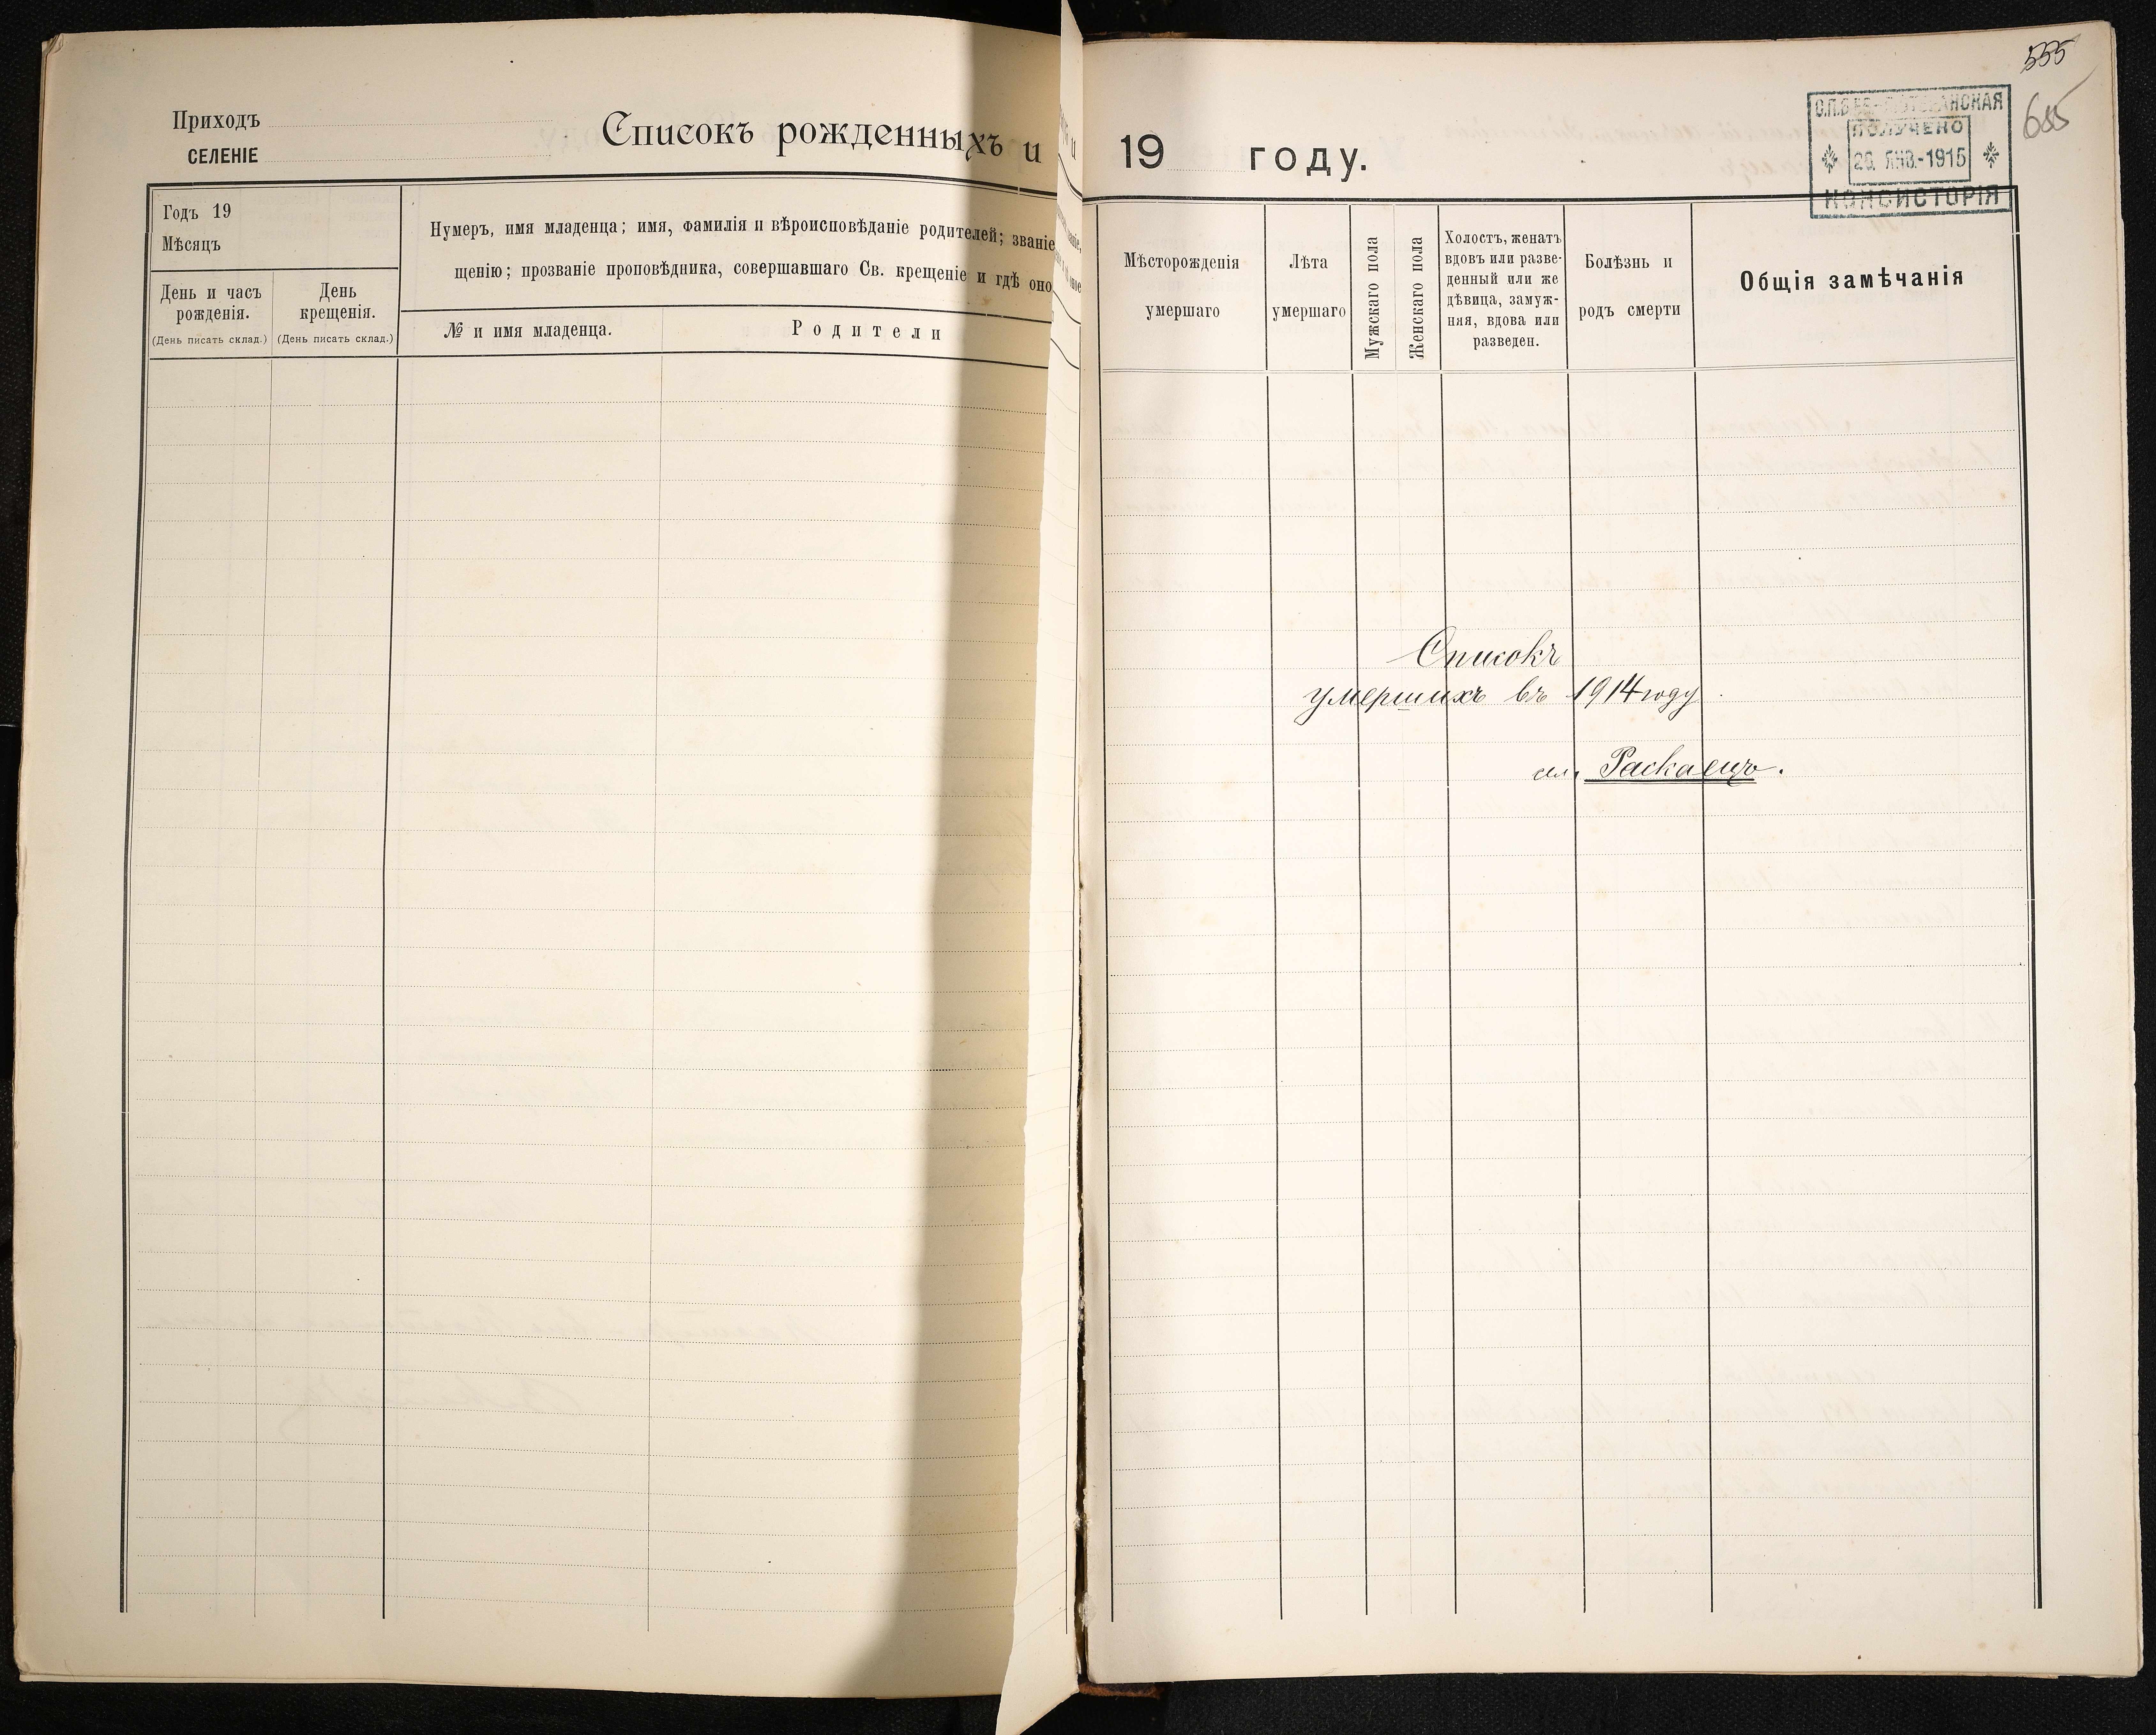 Приходъ
СЕЛЕНІЕ
Списокъ рожденныхъ и
Годъ 19
Мѣсяцъ
День и часъ
рожденія.
(День писать склад.)
День
крещенія.
(День писать склад.)
Нумеръ, имя младенца; имя, фамилія и вѣроисповѣданіе родителей; званіе
щенію; прозваніе проповѣдника, совершавшаго Св. крещеніе и гдѣ оно
№ и имя младенца.
Родители
19 году.
555
655
ПОЛУЧЕНО
26. ЯНВ.-1915
КОНСИСТОРІЯ
Мѣсторожденія
умершаго
Лѣта
умершаго
Мужскаго пола
Женскаго пола
Холостъ, женатъ
вдовъ или разве-
денный или же
дѣвица, замуж-
няя, вдова или
разведен.
Болѣзнь и
родъ смерти
Общія замѣчанія
Списокъ
умершихъ въ 1914 году.
сел. Раскаецъ.